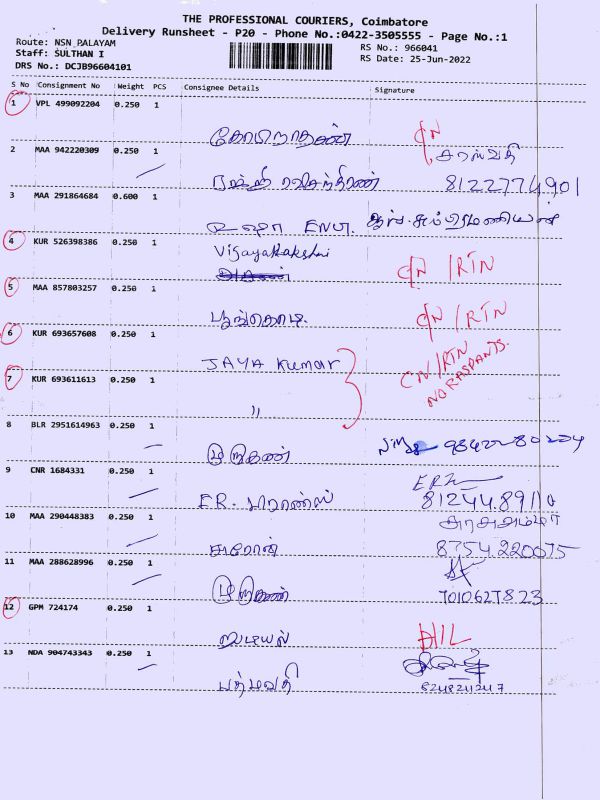 THE PROFESSIONAL COURIERS, Coimbatore
Delivery Runsheet - P20 - Phone No.:0422-3505555 - Page No.:1
Route: NSN_PALAYAM
RS No.: 966041
Staff: SULTHAN I
RS Date: 25-Jun-2022
DRS No.: DCJB96604101
S No Consignment No Weight PCS Consignee Details Signature
1 VPL 499092204 0.250 1
2 MAA 942220309 0.250 1
சரஸ்வதி
8122774901
3 MAA 291864684 0.600 1
உஷா ENT.
4 KUR 526398386 0.250 1
Vijayalakshmi
CN /RTN
5 MAA 857803257 0.250 1
பூங்கொடி
CN /RTN
6 KUR 693657608 0.250 1
JAYA Kumar
CN/RTN
7 KUR 693611613 0.250 1
"
8 BLR 2951614963 0.250 1
முருகன்
9 CNR 1684331 0.250 1
ER.
10 MAA 290448383 0.250 1
சரோன்
8754220075
11 MAA 288628996 0.250 1
முருகன்
7010627823
12 GPM 724174 0.250 1
13 NDA 904743343 0.250 1
பத்மவதி